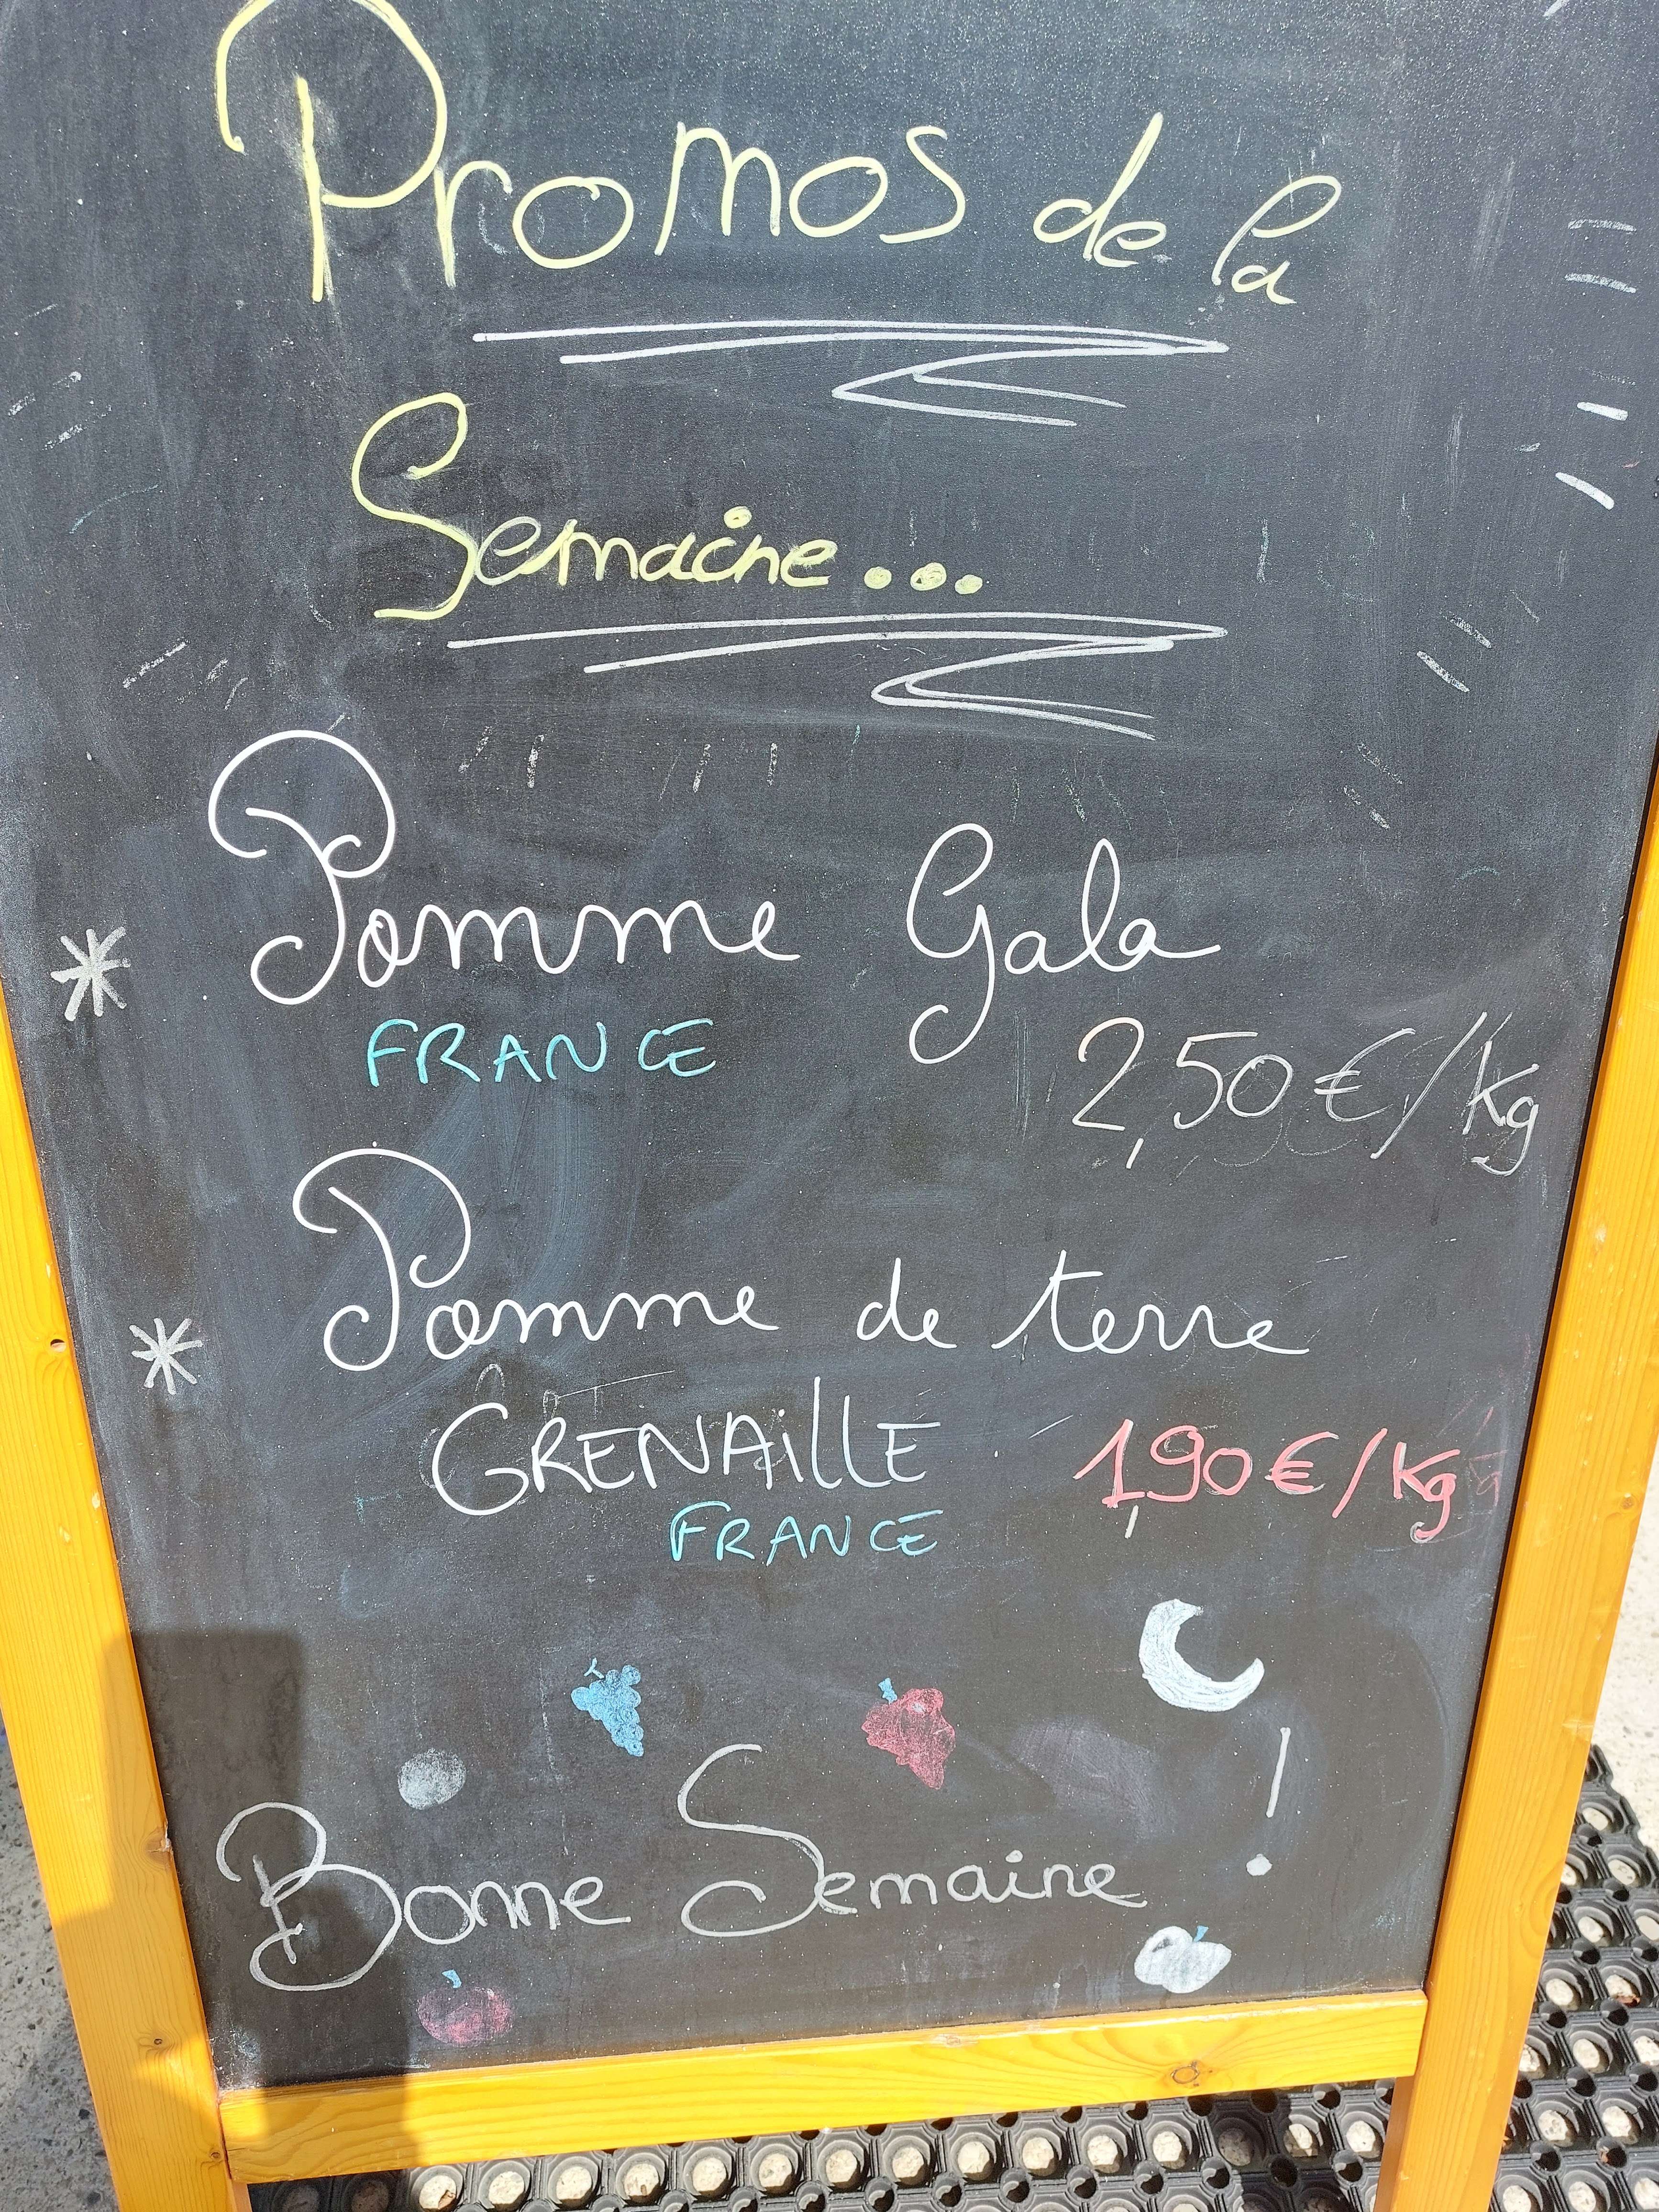 Promos de la
Semaine...
* Pomme Gala
FRANCE
2,50€/Kg
* Pomme de terre
GRENAillE 1,90€/Kg
FRANCE
Bonne Semaine !